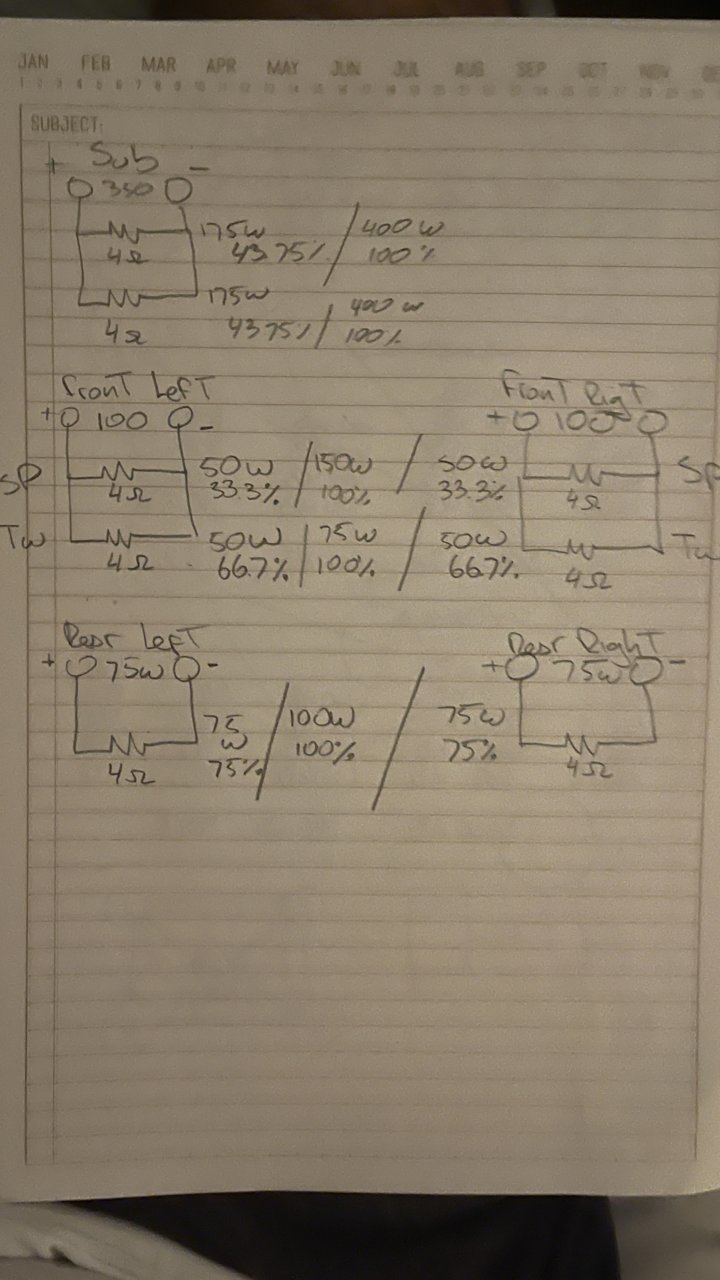 JAN FEB MAR APR MAY JUN JUL AUG SEP OCT NOV
SUBJECT:
+ Sub -
350
175W / 400W
4Ω 43.75% 100%
175W 400W
4Ω 43.75% / 100%
Front Left Front Rigt
+ 100 - + 100
SP 50W / 150W / 50W SP
4Ω 33.3% 100% 33.3% 4Ω
Tw 50W / 75W / 50W
4Ω 66.7% 100% 66.7% 4Ω
Rear Left Rear Right
+ 75W - + 75W -
75 / 100W / 75W
W 100% 75%
4Ω 75% 4Ω